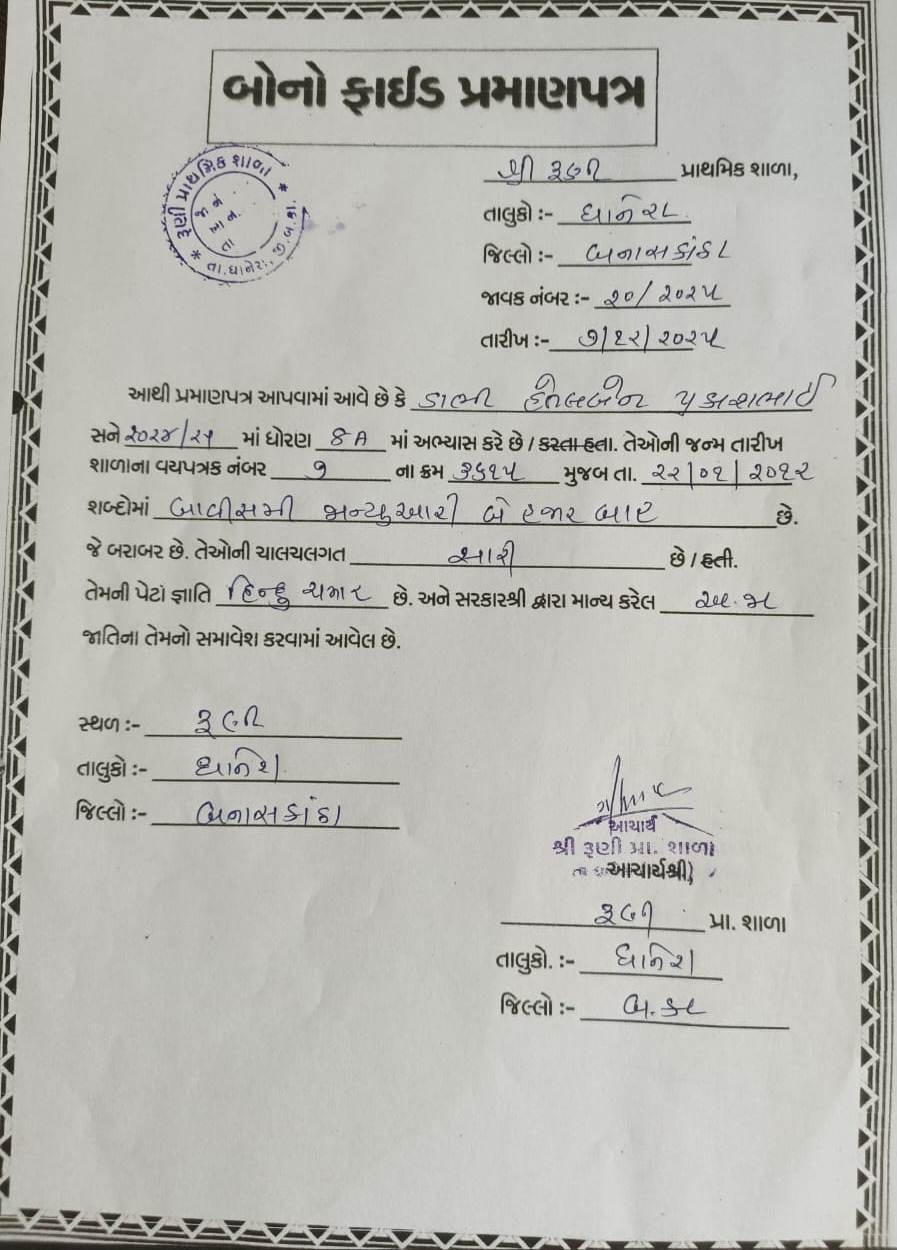 બોનો ફાઈડ પ્રમાણપત્ર
* રૂણી પ્રાથમિક શાળા * તા.ધાનેરા, જી.બ.કાં.
શ્રી રૂણી પ્રાથમિક શાળા,
તાલુકો :- ધાનેરા
જિલ્લો :- બનાસકાંઠા
જાવક નંબર :- ૨૦/૨૦૨૫
તારીખ :- ૭/૧૨/૨૦૨૫
આથી પ્રમાણપત્ર આપવામાં આવે છે કે ડાભી હેતલબેન પ્રકાશભાઈ
સને ૨૦૨૪/૨૫ માં ધોરણ 8A માં અભ્યાસ કરે છે / કરતા હતા. તેઓની જન્મ તારીખ
શાળાના વયપત્રક નંબર ૭ ના ક્રમ ૩૬૧૫ મુજબ તા. ૨૨/૦૧/૨૦૧૨
શબ્દોમાં બાવીસમી જાન્યુઆરી બે હજાર બાર છે.
જે બરાબર છે. તેઓની ચાલચલગત સારી છે / હતી.
તેમની પેટાં જ્ઞાતિ હિન્દુ ચમાર છે. અને સરકારશ્રી દ્વારા માન્ય કરેલ અ.જા
જાતિના તેમનો સમાવેશ કરવામાં આવેલ છે.
સ્થળ :- રૂણી
તાલુકો :- ધાનેરા
જિલ્લો :- બનાસકાંઠા
આચાર્ય
શ્રી રૂણી પ્રા. શાળા
આચાર્યશ્રી,
રૂણી પ્રા. શાળા
તાલુકો. :- ધાનેરા
જિલ્લો :- બ.કાં